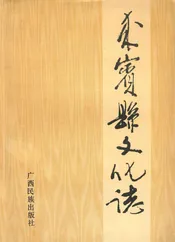 来賓縣文化誌
广西民族出版社